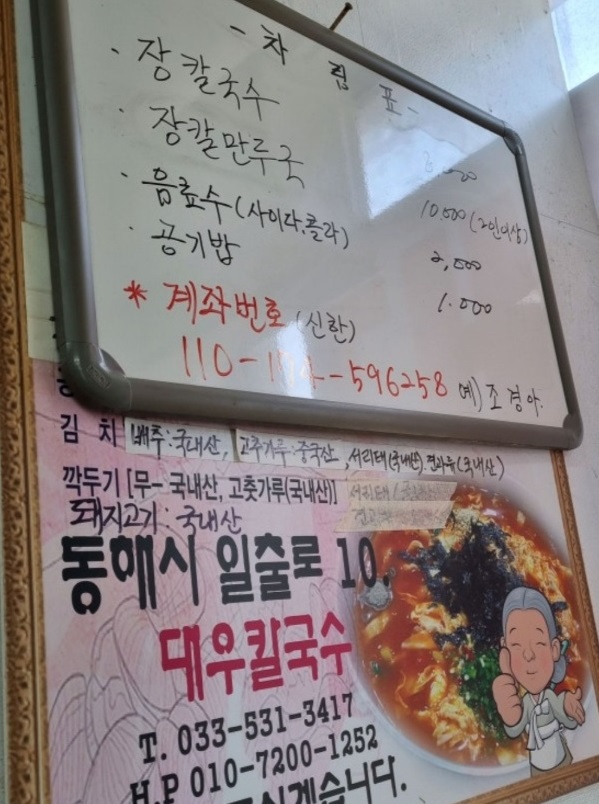 - 차 림 표 -
· 장칼국수
· 장칼만두국 10,000 (2인이상)
· 음료수 (사이다,콜라) 2,000
· 공기밥 1,000
* 계좌번호 (신한)
110- -596258 예) 조경아.
김 치 배추:국내산, 고추가루:중국산, 서리태(국내산).견과류(국내산)
깍두기 [무- 국내산, 고춧가루(국내산)] 서리태
돼지고기: 국내산
동해시 일출로 10.
대우칼국수
T. 033-531-3417
H.P 010-7200-1252